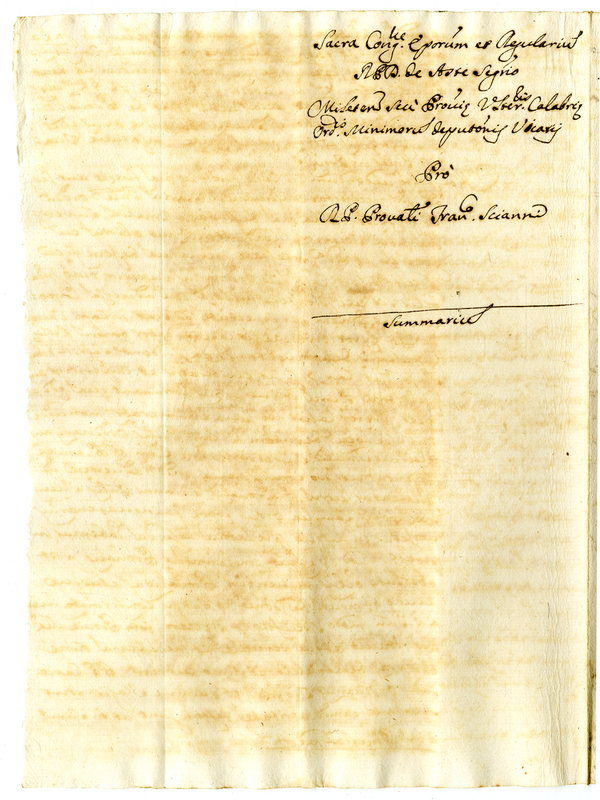 Sacra Cong.ne Eporum et Regularium
R.P.D. de Aste Segrio
Militen Seu Provię Ulter.ris Calabrię
Ord.s Minimorum deputónis Vicarij
Pro
R.P. Provali Fran.co Scianni
Summarium